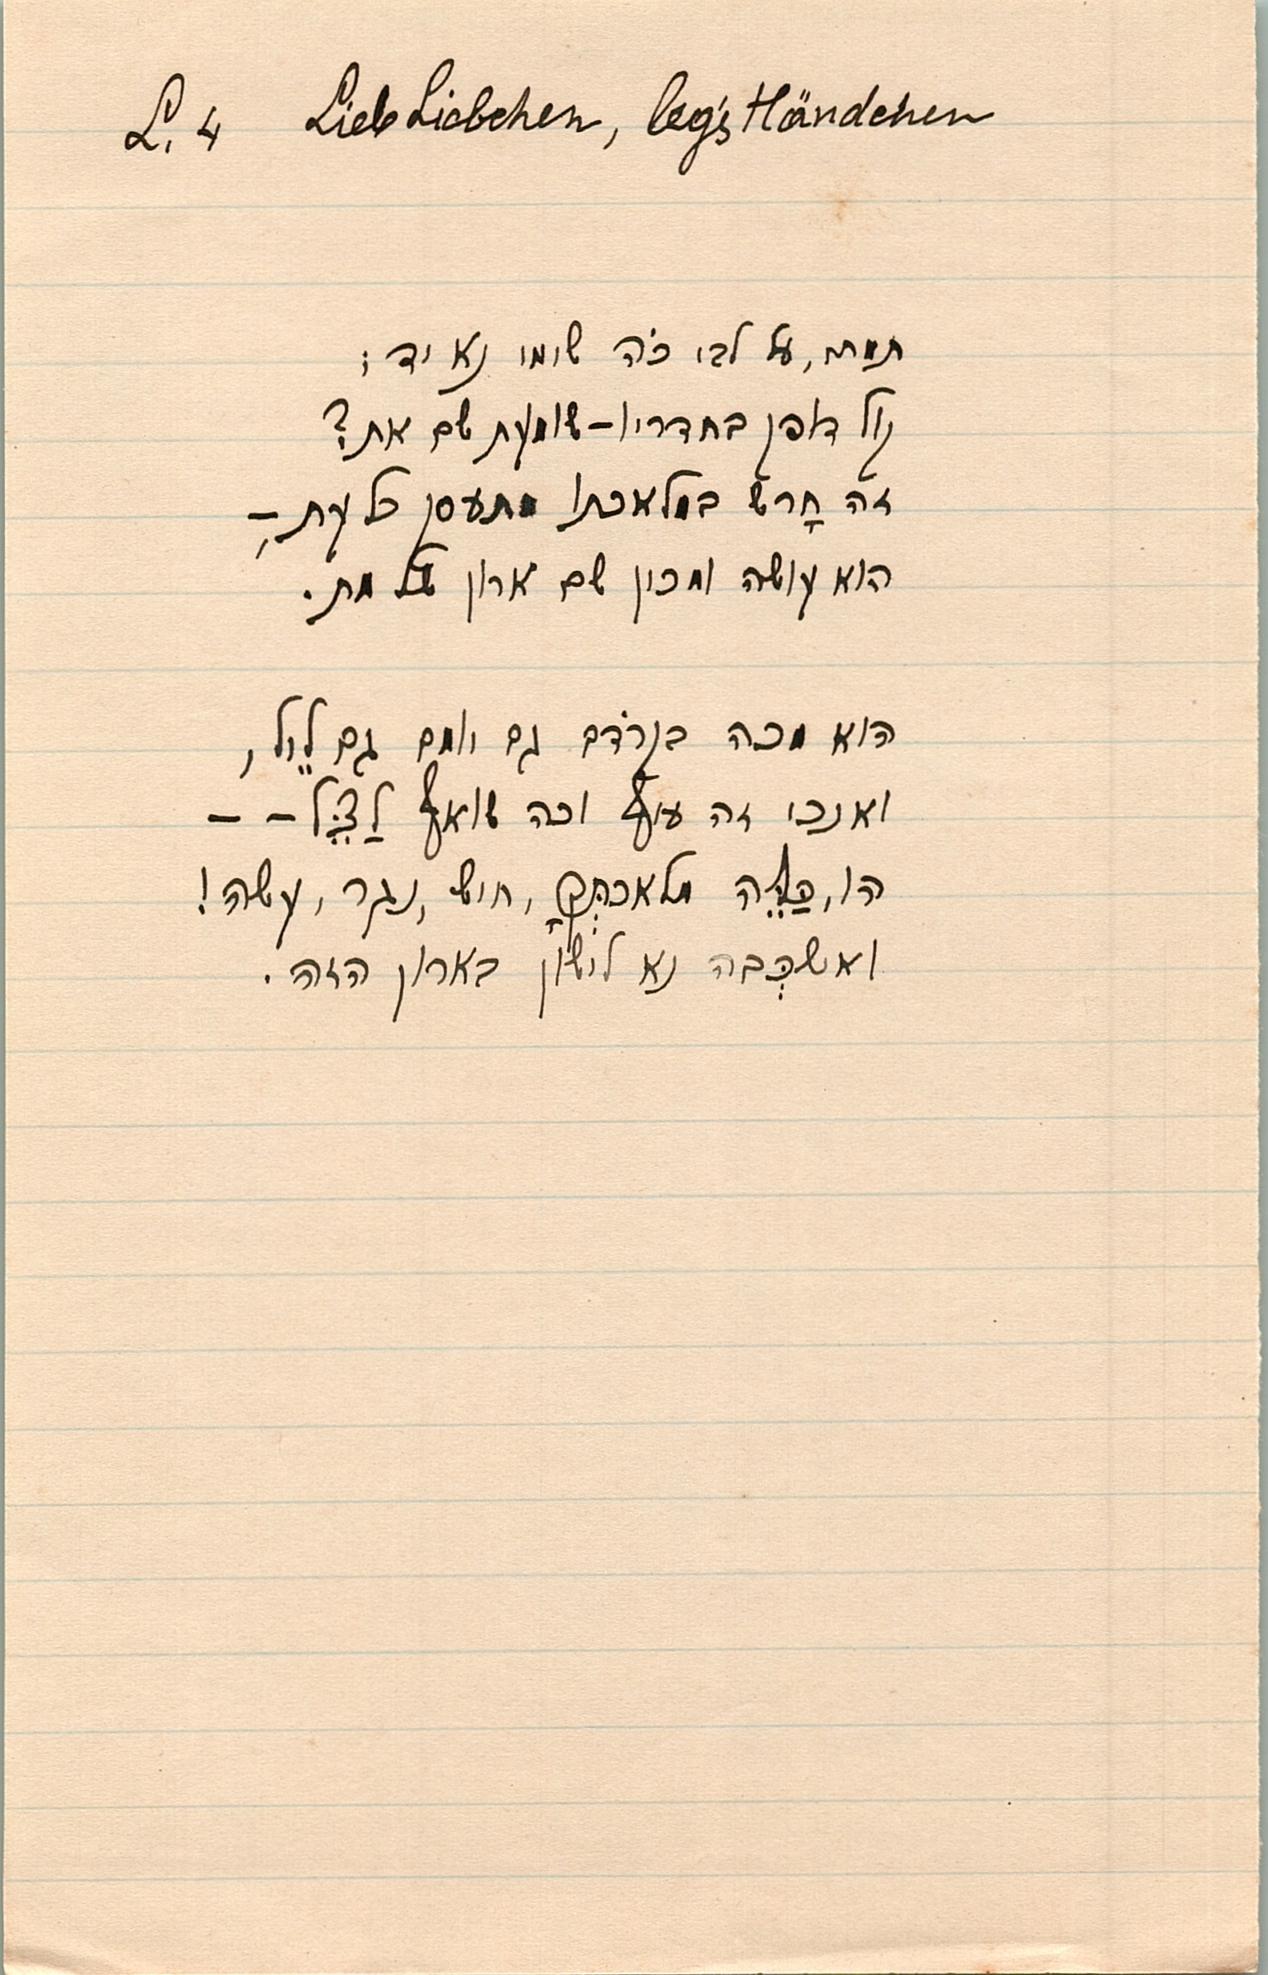 L. 4 Lieb Liebchen, leg's Händchen
תמתי, על לבי כֹה שימי נא יד;
קול דופק בחדריו – שומעת שם את?
זה חָרש במלאכתו מתעסק כל עת, –
הוא עושה ומכין שם ארון של מת.
הוא מכה בקרדֹם גם יומם גם לֵיל,
ואנכי זה עיף וכה שואף לַצֵּל – –
הו, כַּלֵּה מלאכתְּךָ, חיש, נגר, עשה!
ואשכְּבה נא לִישׁוֹן בארון הזה.